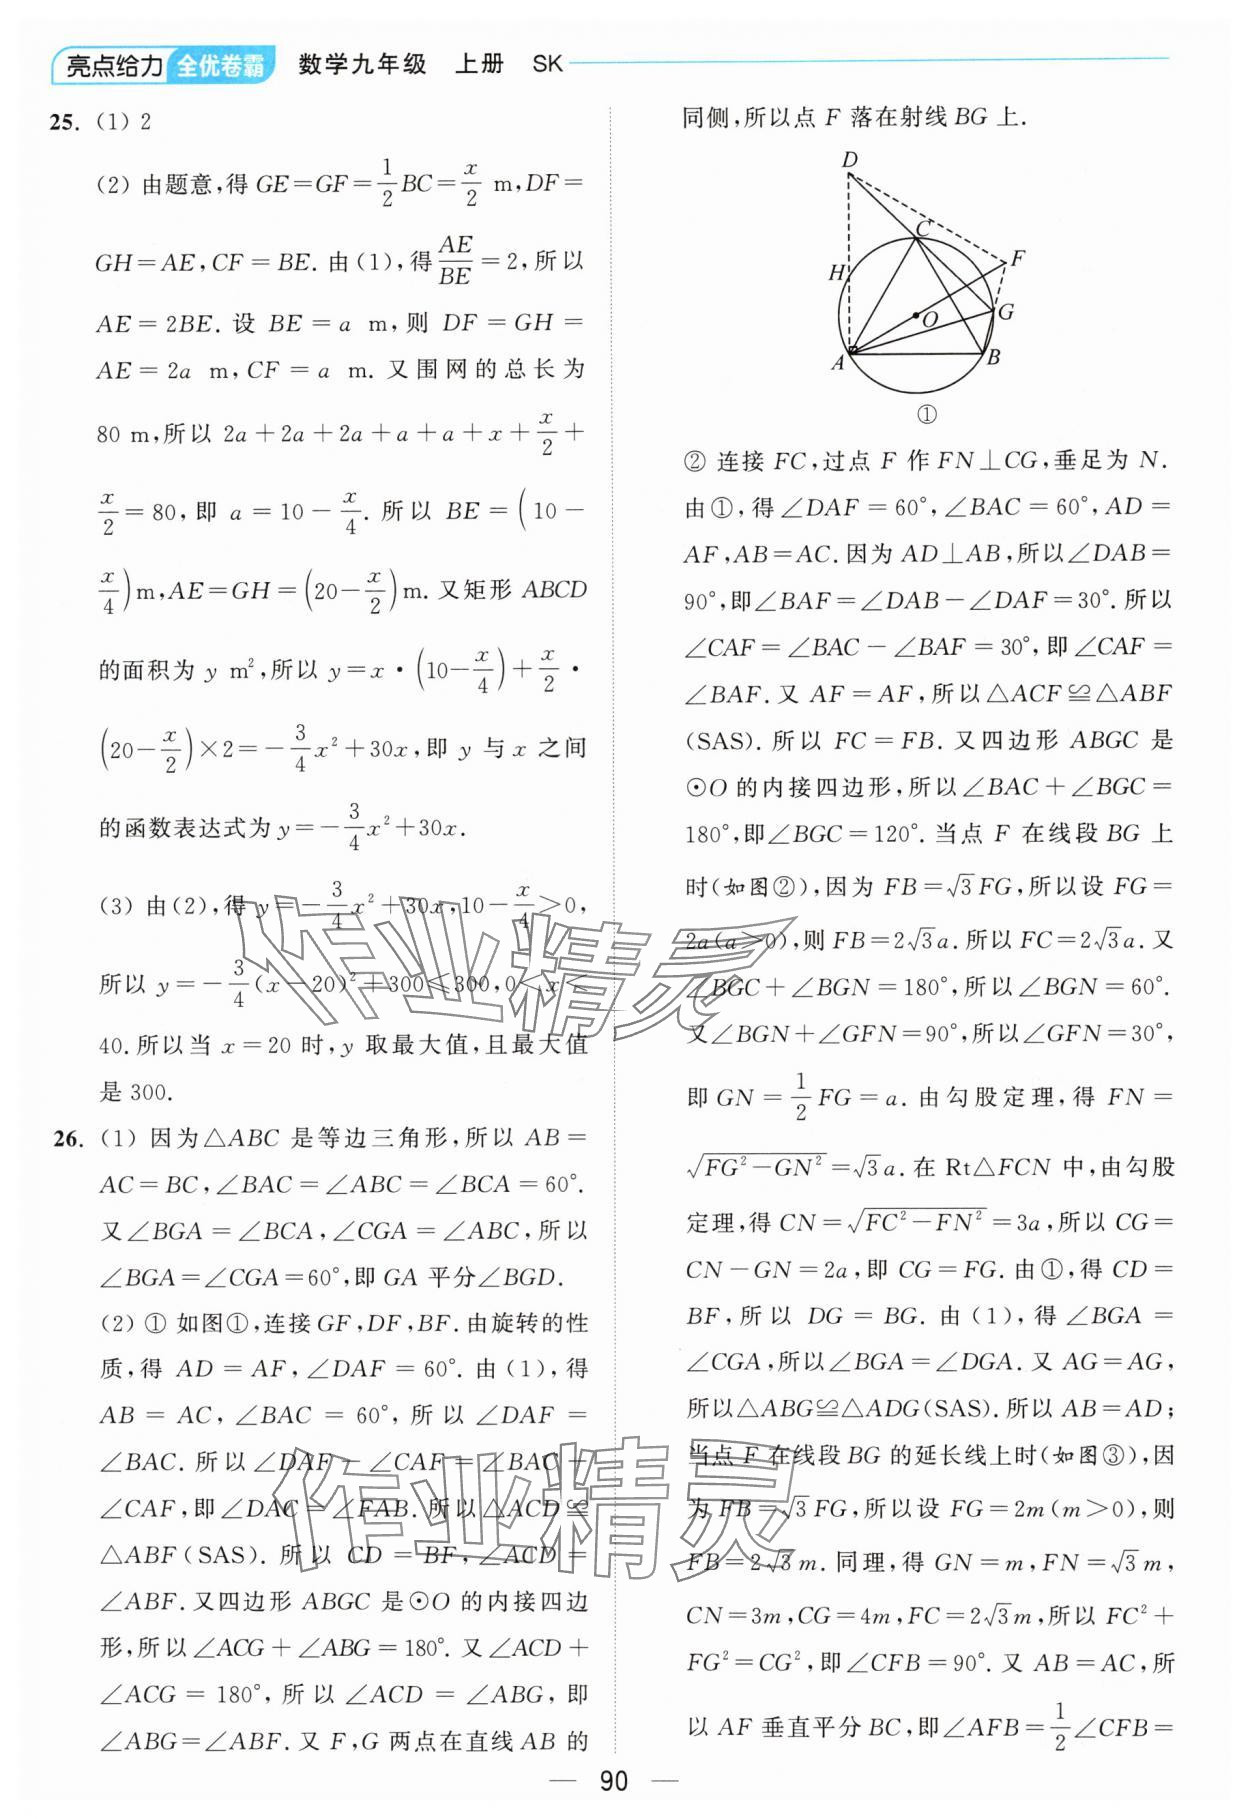 亮点给力 全优卷霸 数学九年级 上册 SK
25. (1) 2
(2) 由题意,得 GE=GF=1/2 BC=x/2 m,DF=
GH=AE,CF=BE.由(1),得 AE/BE=2,所以
AE=2BE.设 BE=a m,则 DF=GH=
AE=2a m,CF=a m.又围网的总长为
80 m,所以 2a+2a+2a+a+a+x+x/2+
x/2=80,即 a=10-x/4.所以 BE=(10-
x/4)m,AE=GH=(20-x/2)m.又矩形 ABCD
的面积为 y m²,所以 y=x·(10-x/4)+x/2·
(20-x/2)×2=-3/4x²+30x,即 y 与 x 之间
的函数表达式为 y=-3/4x²+30x.
(3) 由(2),得 y=-3/4x²+30x,10-x/4>0,
所以 y=-3/4(x-20)²+300≤300,0<x<
40.所以当 x=20 时,y 取最大值,且最大值
是 300.
26. (1) 因为△ABC 是等边三角形,所以 AB=
AC=BC,∠BAC=∠ABC=∠BCA=60°.
又∠BGA=∠BCA,∠CGA=∠ABC,所以
∠BGA=∠CGA=60°,即 GA 平分∠BGD.
(2) ① 如图①,连接 GF,DF,BF.由旋转的性
质,得 AD=AF,∠DAF=60°.由(1),得
AB=AC,∠BAC=60°,所以∠DAF=
∠BAC.所以∠DAF-∠CAF=∠BAC-
∠CAF,即∠DAC=∠FAB.所以△ACD≌
△ABF(SAS).所以 CD=BF,∠ACD=
∠ABF.又四边形 ABGC 是⊙O 的内接四边
形,所以∠ACG+∠ABG=180°.又∠ACD+
∠ACG=180°,所以∠ACD=∠ABG,即
∠ABG=∠ABF.又 F,G 两点在直线 AB 的
同侧,所以点 F 落在射线 BG 上.
D
C
F
H
G
O
A
B
①
② 连接 FC,过点 F 作 FN⊥CG,垂足为 N.
由①,得∠DAF=60°,∠BAC=60°,AD=
AF,AB=AC.因为 AD⊥AB,所以∠DAB=
90°,即∠BAF=∠DAB-∠DAF=30°.所以
∠CAF=∠BAC-∠BAF=30°,即∠CAF=
∠BAF.又 AF=AF,所以△ACF≌△ABF
(SAS).所以 FC=FB.又四边形 ABGC 是
⊙O 的内接四边形,所以∠BAC+∠BGC=
180°,即∠BGC=120°.当点 F 在线段 BG 上
时(如图②),因为 FB=√3FG,所以设 FG=
2a(a>0),则 FB=2√3a.所以 FC=2√3a.又
∠BGC+∠BGN=180°,所以∠BGN=60°.
又∠BGN+∠GFN=90°,所以∠GFN=30°,
即 GN=1/2FG=a.由勾股定理,得 FN=
√(FG²-GN²)=√3a.在 Rt△FCN 中,由勾股
定理,得 CN=√(FC²-FN²)=3a,所以 CG=
CN-GN=2a,即 CG=FG.由①,得 CD=
BF,所以 DG=BG.由(1),得∠BGA=
∠CGA,所以∠BGA=∠DGA.又 AG=AG,
所以△ABG≌△ADG(SAS).所以 AB=AD;
当点 F 在线段 BG 的延长线上时(如图③),因
为 FB=√3FG,所以设 FG=2m(m>0),则
FB=2√3m.同理,得 GN=m,FN=√3m,
CN=3m,CG=4m,FC=2√3m,所以 FC²+
FG²=CG²,即∠CFB=90°.又 AB=AC,所
以 AF 垂直平分 BC,即∠AFB=1/2∠CFB=
— 90 —
作业精灵
作业精灵